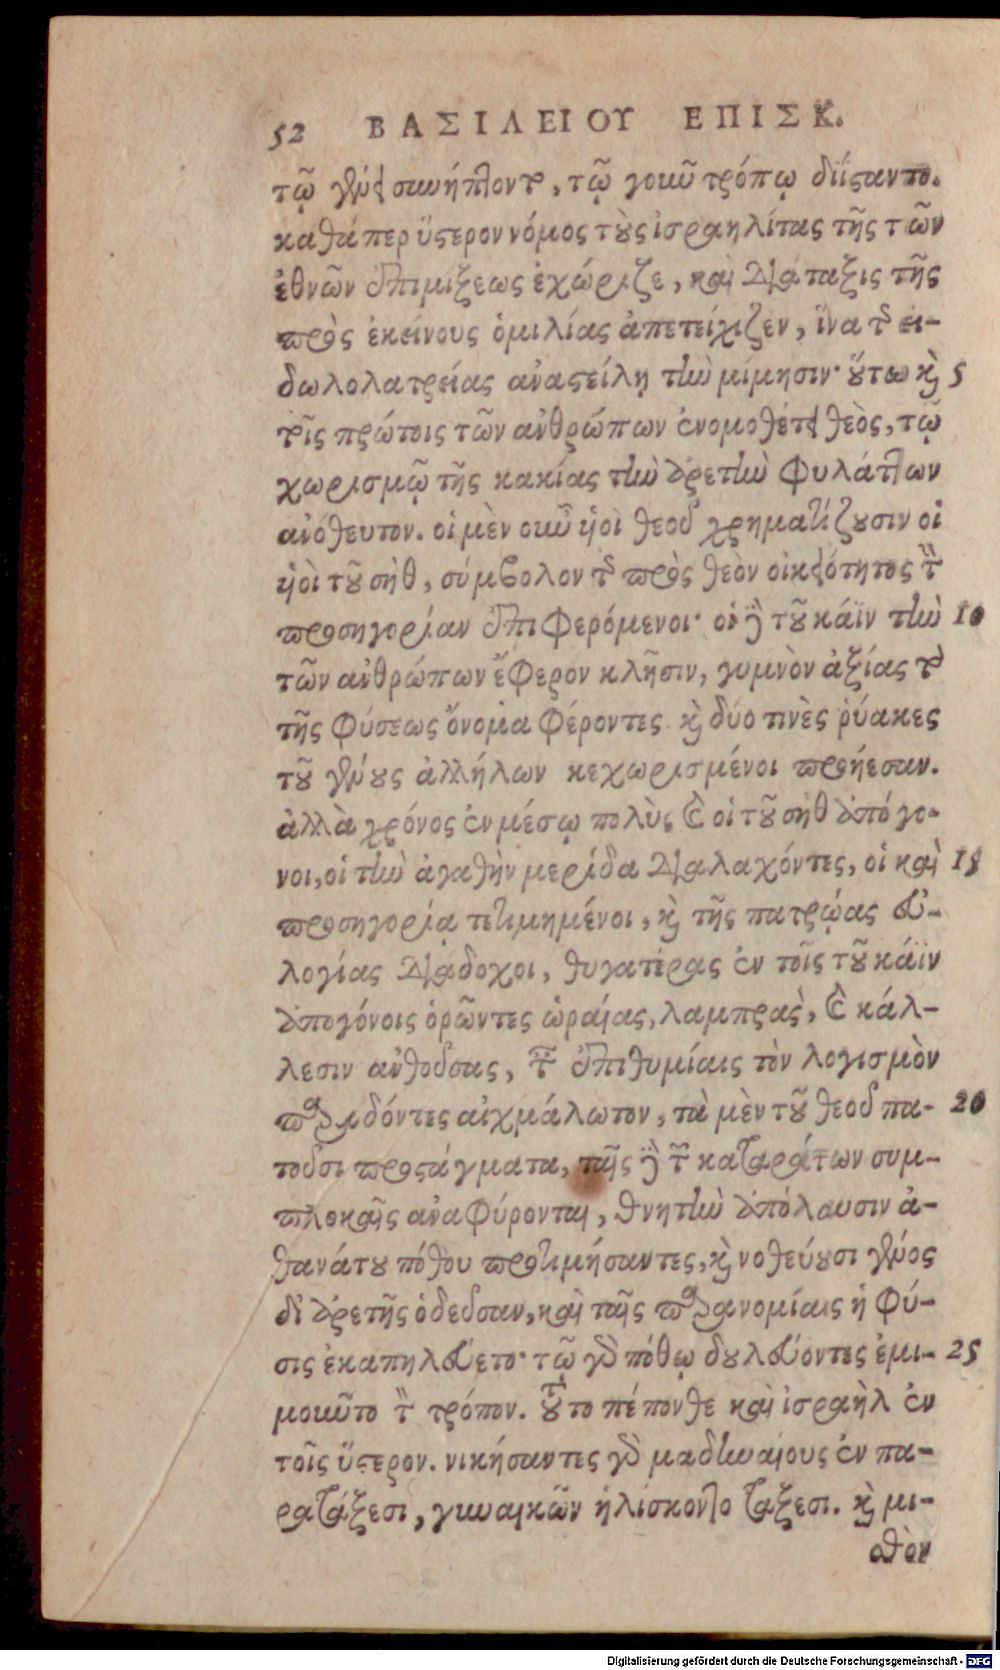 52 ΒΑΣΙΛΕΙΟΥ ΕΠΙΣΚ.
τῷ γένει συνήπτοντο, τῷ γοῦν τρόπῳ διίσταντο.
καθάπερ ὕστερον νόμος τοὺς ἰσραηλίτας τῆς τῶν
ἐθνῶν ἐπιμίξεως ἐχώριζε, καὶ διάταξις τῆς
πρὸς ἐκείνους ὁμιλίας ἀπετείχιζεν, ἵνα τῆς εἰ-
δωλολατρείας ἀναστείλῃ τὴν μίμησιν· οὕτω καὶ 5
τοῖς πρώτοις τῶν ἀνθρώπων ἐνομοθέτει θεὸς, τῷ
χωρισμῷ τῆς κακίας τὴν ἀρετὴν φυλάττων
ἀνόθευτον. οἱ μὲν οὖν υἱοὶ θεοῦ χρηματίζουσιν οἱ
υἱοὶ τοῦ σὴθ, σύμβολον τῆς πρὸς θεὸν οἰκειότητος τὴν
προσηγορίαν ἐπιφερόμενοι· οἱ δὲ τοῦ κάϊν τὴν 10
τῶν ἀνθρώπων ἔφερον κλῆσιν, γυμνὸν ἀξίας τὸ
τῆς φύσεως ὄνομα φέροντες. καὶ δύο τινὲς ῥύακες
τοῦ γένους ἀλλήλων κεχωρισμένοι προήεσαν.
ἀλλὰ χρόνος ἐν μέσῳ πολὺς καὶ οἱ τοῦ σὴθ ἀπόγο-
νοι, οἱ τὴν ἀγαθὴν μερίδα διαλαχόντες, οἱ καὶ 15
προσηγορίᾳ τετιμημένοι, καὶ τῆς πατρῴας εὐ-
λογίας διάδοχοι, θυγατέρας ἐν τοῖς τοῦ κάϊν
ἀπογόνοις ὁρῶντες ὡραίας, λαμπρὰς, καὶ κάλ-
λεσιν ἀνθούσας, ταῖς ἐπιθυμίαις τὸν λογισμὸν
παραδόντες αἰχμάλωτον, τὰ μὲν τοῦ θεοῦ πα- 20
τοῦσι προστάγματα, ταῖς δὲ τῶν καταράτων συμ-
πλοκαῖς ἀναφύρονται, θνητὴν ἀπόλαυσιν ἀ-
θανάτου πόθου προτιμήσαντες, καὶ νοθεύουσι γένος
δι' ἀρετῆς ὁδεῦσαν, καὶ ταῖς παρανομίαις ἡ φύ-
σις ἐκαπηλεύετο· τῷ γὰρ πόθῳ δουλεύοντες ἐμι- 25
μοῦντο τὸν τρόπον. τοῦτο πέπονθε καὶ ἰσραὴλ ἐν
τοῖς ὕστερον. νικήσαντες γὰρ μαδιηναίους ἐν πα-
ρατάξεσι, γυναικῶν ἡλίσκοντο τάξεσι. καὶ μι-
σθὸν
Digitalisierung gefördert durch die Deutsche Forschungsgemeinschaft - DFG